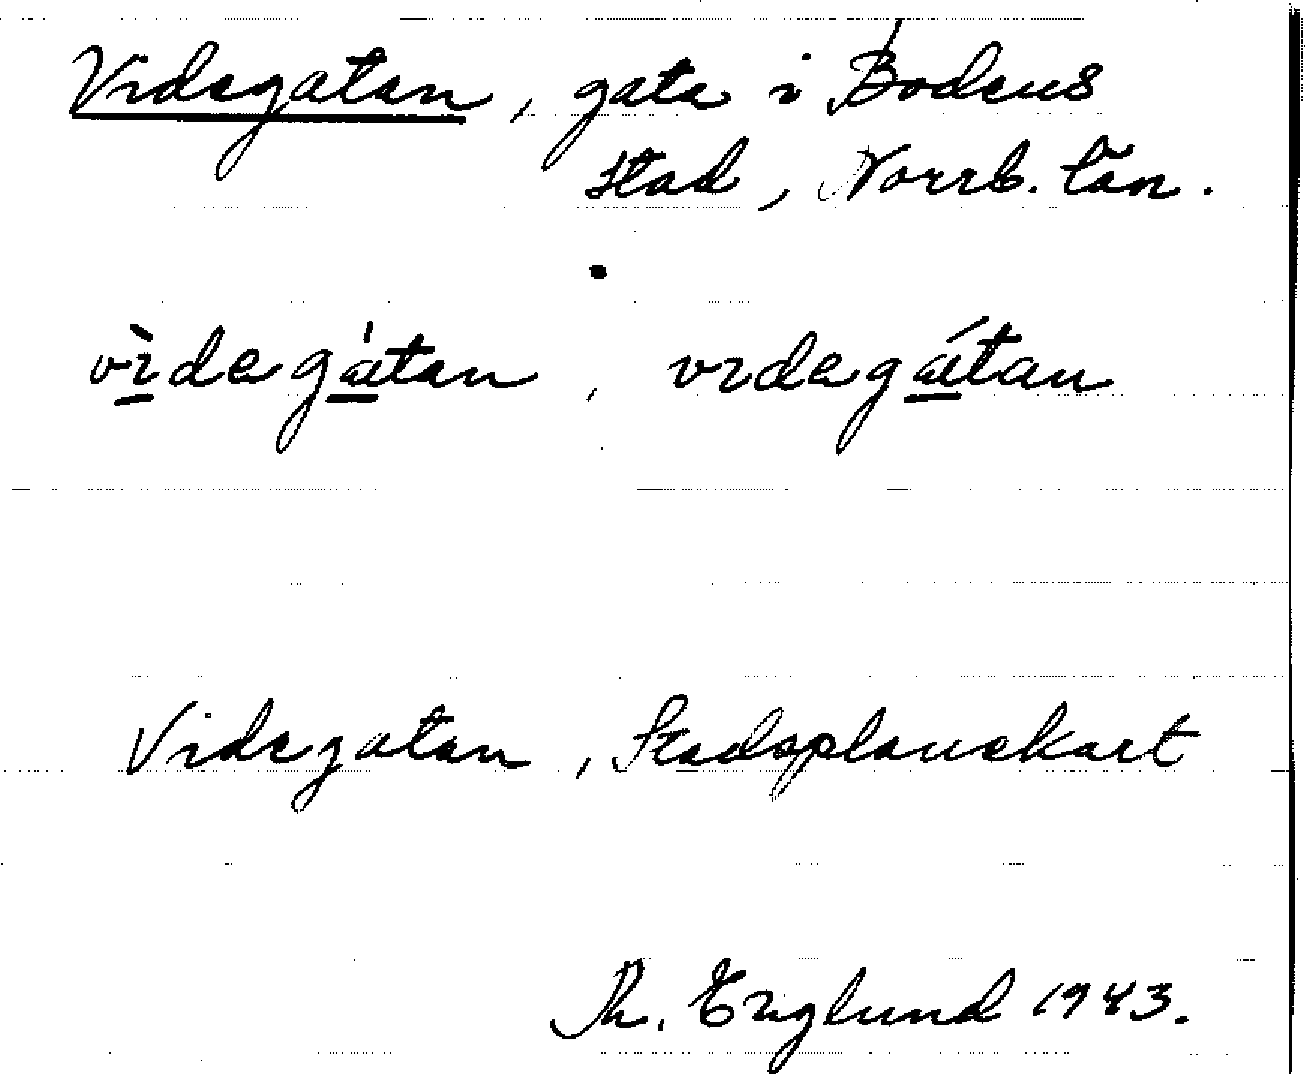 Videgatan, gata i Bodens
stad, Norrb. län.
vìdegátan, videgátan
Videgatan, Stadsplanekart
Th. Englund 1943.